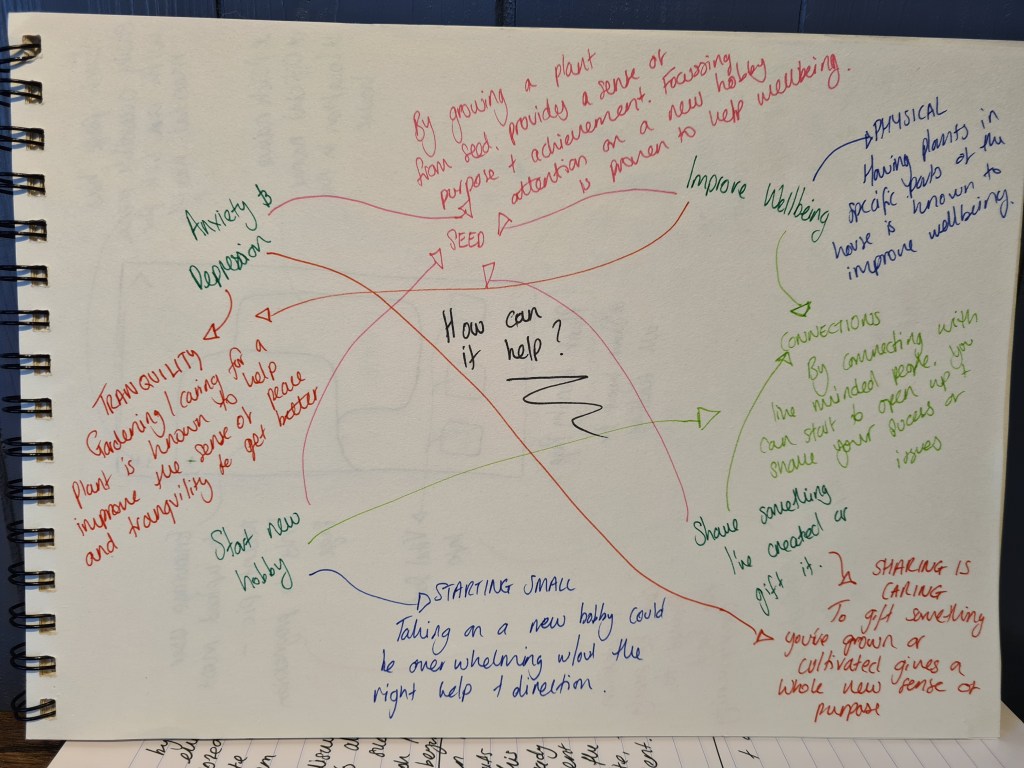 By growing a plant
from seed. provides a sense of
purpose + achievement. Focussing
attention on a new hobby
is proven to help wellbeing.
Anxiety &
Depression
SEED
Improve Wellbeing
PHYSICAL
Having plants in
specific parts of the
house is known to
improve wellbeing.
How can
it help?
TRANQUILITY
Gardening / caring for a
plant is known to help
improve the sense of peace
and tranquility to get better
CONNECTIONS
By connecting with
like minded people. you
can start to open up +
share your success or
issues
Start new
hobby
Share something
I've created or
gift it.
STARTING SMALL
Taking on a new hobby could
be over whelming w/out the
right help + direction.
SHARING IS
CARING
To gift something
you've grown or
cultivated gives a
whole new sense of
purpose